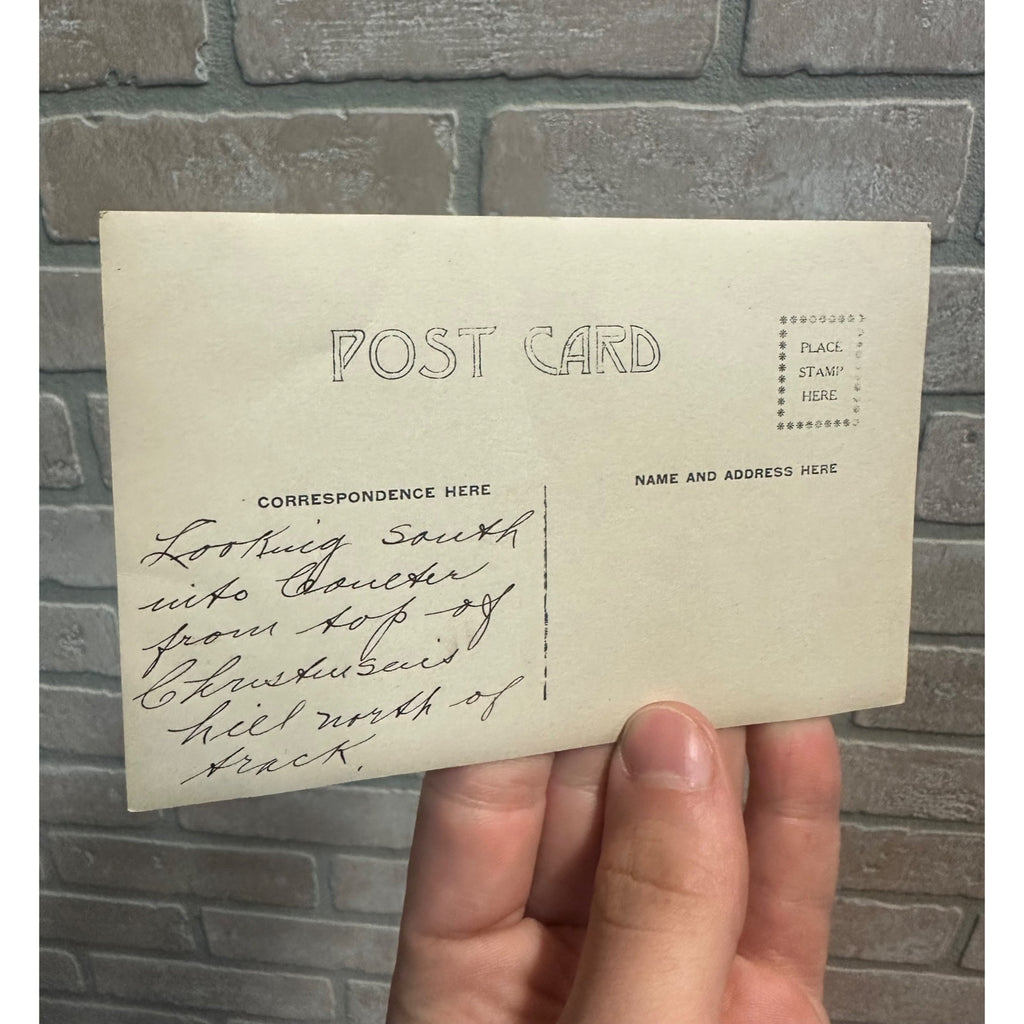 POST CARD
PLACE
STAMP
HERE
CORRESPONDENCE HERE
NAME AND ADDRESS HERE
Looking south
into Coulter
from top of
Christensens
hill north of
track.